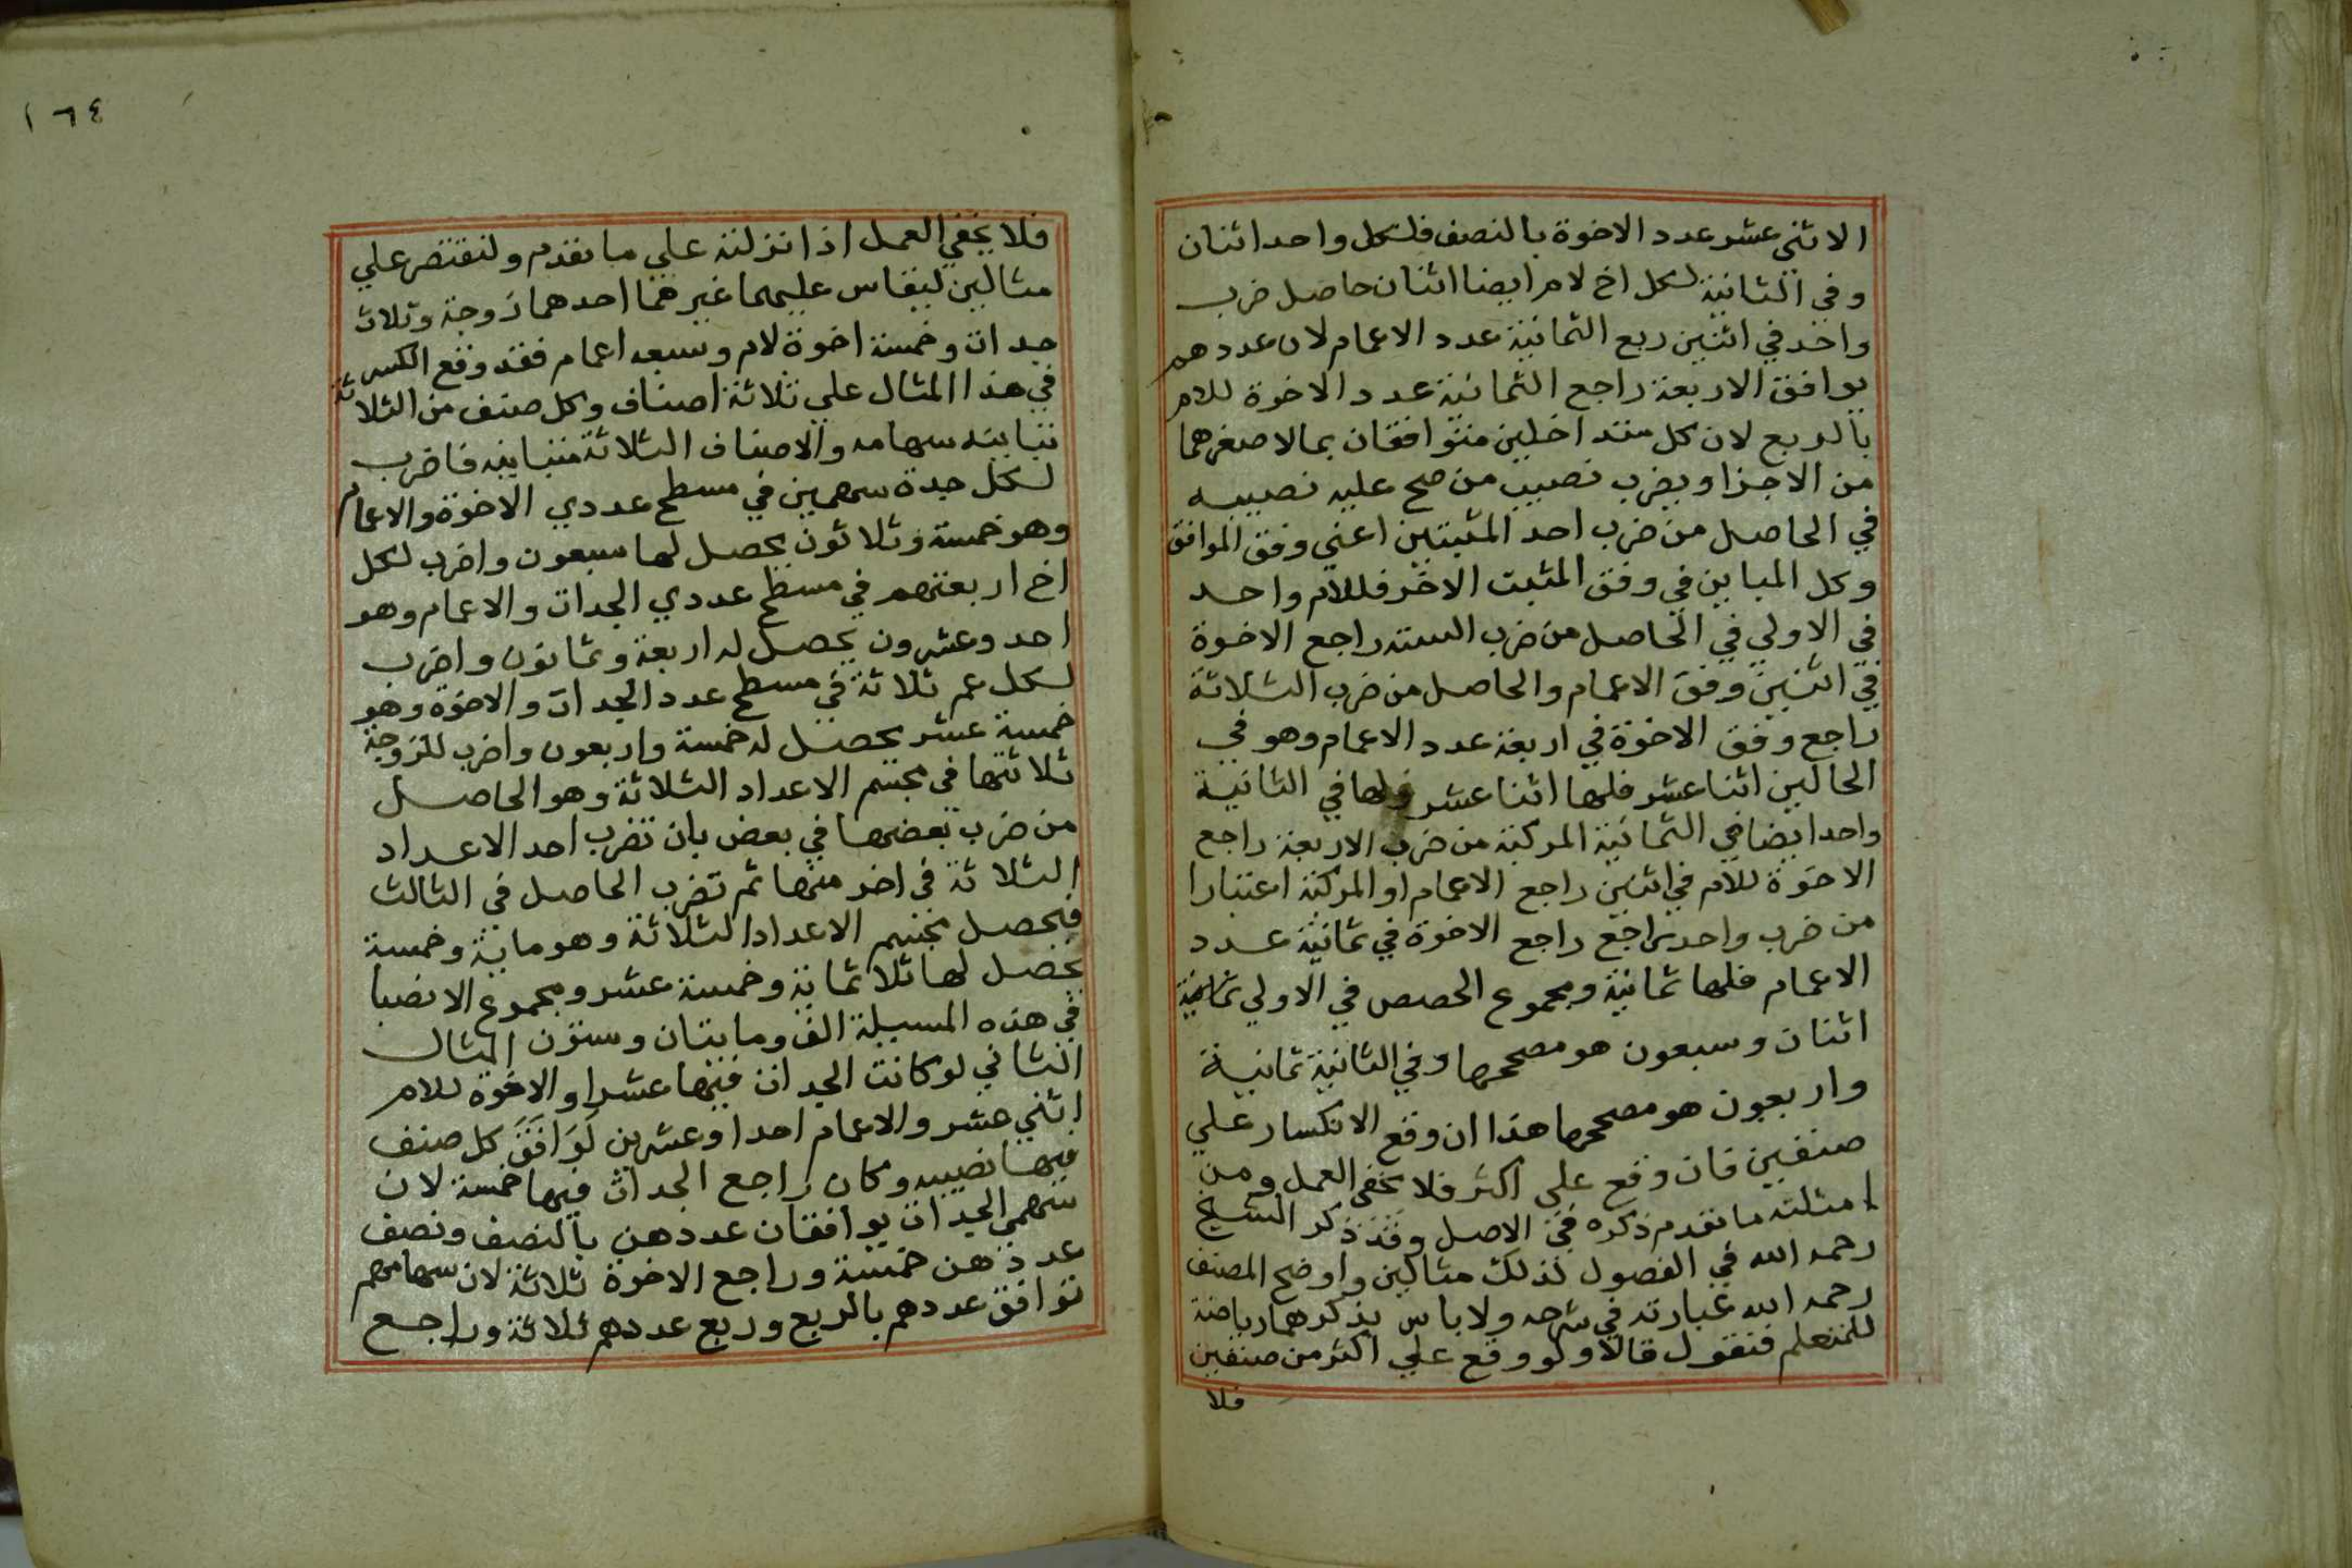 الاثنى عشر عدد الاخوة بالنصف فلكل واحد اثنان
وفي الثانية لكل اخ لام ايضا اثنان حاصل ضرب
واحد في اثنين ربع الثمانية عدد الاعمام لان عددهم
يوافق الاربعة راجع الثمانية عدد الاخوة للام
بالربع لان كل متداخلين متوافقان بما لاصغرهما
من الاجزا ويضرب نصيب من صح عليه نصيبه
في الحاصل من ضرب احد المثبتين اعني وفق الموافق
وكل المباين في وفق المثبت الاخر فللام واحد
في الاولي في الحاصل من ضرب الستة راجع الاخوة
في اثنين وفق الاعمام والحاصل من ضرب الثلاثة
راجع وفق الاخوة في اربعة عدد الاعمام وهو في
الحالين اثنا عشر فلها اثنا عشر ولها في الثانية
واحد ايضا في الثمانية المركبة من ضرب الاربعة راجع
الاخوة للام في اثنين راجع الاعمام او المركبة اعتبارا
من ضرب واحد راجع راجع الاخوة في ثمانية عدد
الاعمام فلها ثمانية ومجموع الحصص في الاولي
اثنان وسبعون هو مصححها وفي الثانية ثمانية
واربعون هو مصححها هذا ان وقع الانكسار علي
صنفين فان وقع على اكثر فلا يخفى العمل ومن
امثلته ما تقدم ذكره في الاصل وقد ذكر الشيخ
رحمه الله في الفصول لذلك مثالين واوضح المصنف
رحمه الله عبارته في شرحه ولا باس بذكرهما رياضة
للمتعلم فنقول قالا ولو وقع علي اكثر من صنفين
فلا
١٦٤
فلا يخفي العمل اذا نزلته علي ما تقدم ولنقتصر علي
مثالين ليقاس عليهما غيرهما احدهما زوجة وثلاث
جدات وخمسة اخوة لام وسبعه اعمام فقد وقع الكسر
في هذا المثال علي ثلاثة اصناف وكل صنف من الثلاثة
تباينه سهامه والاصناف الثلاثة متباينه فاضرب
لكل جدة سهمين في مسطح عددي الاخوة والاعمام
وهو خمسة وثلاثون يحصل لها سبعون واضرب لكل
اخ اربعتهم في مسطح عددي الجدات والاعمام وهو
احد وعشرون يحصل له اربعة وثمانون واضرب
لكل عم ثلاثة في مسطح عدد الجدات والاخوة وهو
خمسة عشر يحصل له خمسة واربعون واضرب للزوجة
ثلاثتها في مجسم الاعداد الثلاثة وهو الحاصل
من ضرب بعضها في بعض بان تضرب احد الاعداد
الثلاثة في اخر منها ثم تضرب الحاصل في الثالث
فيحصل مجسم الاعداد الثلاثة وهو ماية وخمسة
يحصل لها ثلاثماية وخمسة عشر ومجموع الانصبا
في هذه المسيلة الف ومايتان وستون المثال
الثاني لو كانت الجدات فيها عشرا والاخوة للام
اثني عشر والاعمام احدا وعشرين لَوَافَقَ كل صنف
فيها نصيبه وكان راجع الجدات فيها خمسة لان
سهمي الجدات يوافقان عددهن بالنصف ونصف
عددهن خمسة وراجع الاخوة ثلاثة لان سهامهم
توافق عددهم بالربع وربع عددهم ثلاثة وراجع